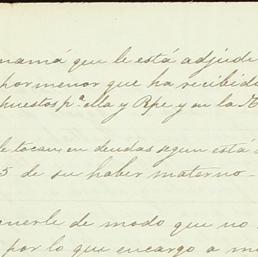 mamá que le está adjudi
pormenor que ha recibido
puestos pª ella y Rpe y en la
le tocan, en deudas segun está
5 de su haber materno -
enerle de modo que no
por lo que encargo a m